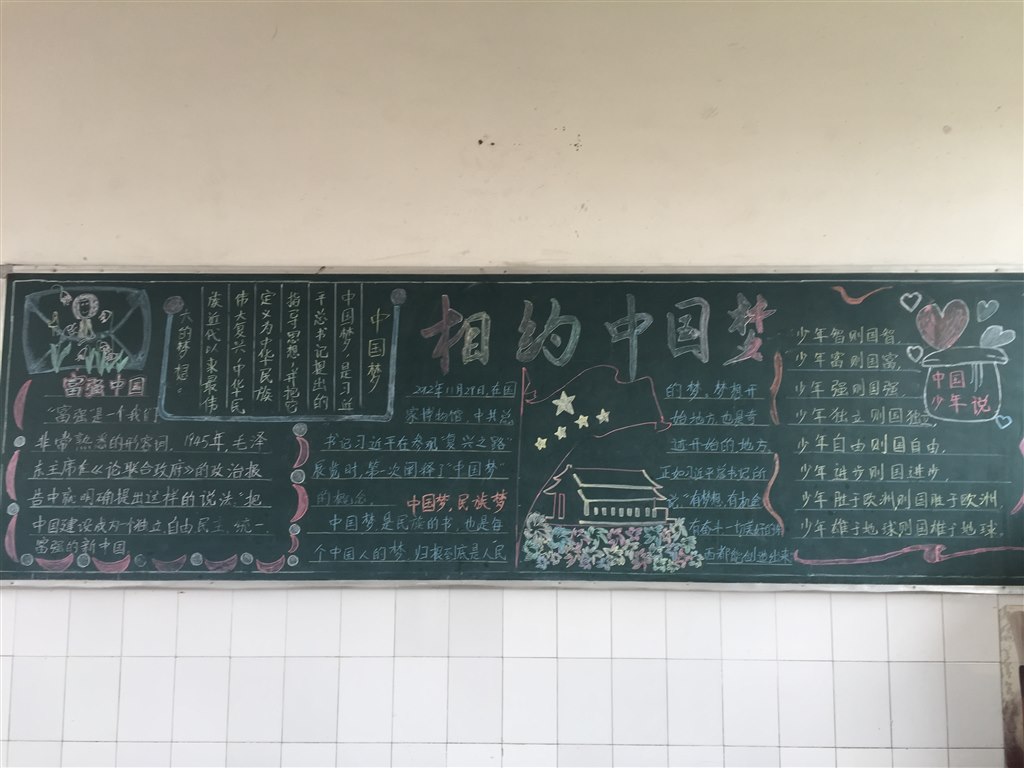 富强中国
"富强"是一个我们
非常熟悉的形容词，1945年，毛泽
东主席在《论联合政府》的政治报
告中就明确提出过这样的说法"把
中国建设成为个独立自由民主统一
富强的新中国
中国梦
中国梦，是习近
平总书记提出的
指导思想，并把它
定义为"中华民族
伟大复兴"，中华民
族近代以来最伟
大的梦想。
相约中国梦
2012年11月29日，在国
家博物馆，中共总
书记习近平在参观"复兴之路"
展览时，第一次阐释了"中国梦"
的概念。
中国梦，民族梦
中国梦是民族的书，也是每
个中国人的梦，归根到底是人民
的梦。梦想开
始地方，也是奇
迹开始的地方
正如习近平总书记所
说"有梦想，有机会
有奋斗一切美好的东
西都能创造出来
少年智则国智，
少年富则国富，
少年强则国强，
少年独立则国独立
少年自由则国自由，
少年进步则国进步，
少年胜于欧洲，则国胜于欧洲
少年雄于地球则国雄于地球。
中国
少年说